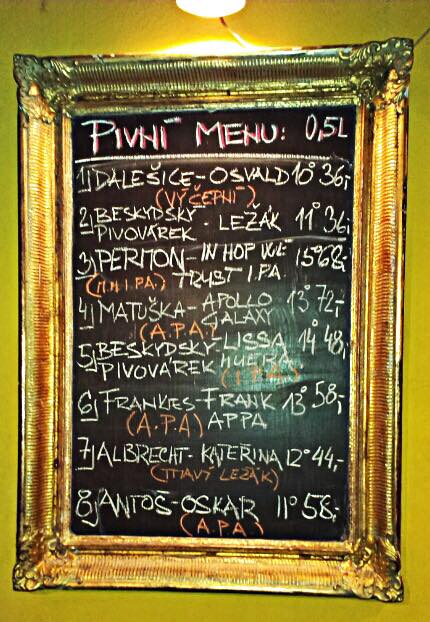 PIVNÍ MENU: 0,5L
1) DALEŠICE - OSVALD 10° 36,-
(VÝČEPNÍ)
2) BESKYDSKÝ PIVOVÁREK - LEŽÁK 11° 36,-
3) PERMON - IN HOP WE TRUST I.P.A. 15° 68,-
I.P.A)
4) MATUŠKA - APOLLO GALAXY 13° 72,-
(A.P.A)
5) BESKYDSKÝ PIVOVÁREK - LISSA 14° 48,-
(I.P.A)
6) FRANKIES - FRANK APPA 13° 58,-
(A.P.A)
7) ALBRECHT - KATEŘINA 12° 44,-
(TMAVÝ LEŽÁK)
8) ANTOŠ - OSKAR 11° 58,-
(A.P.A)